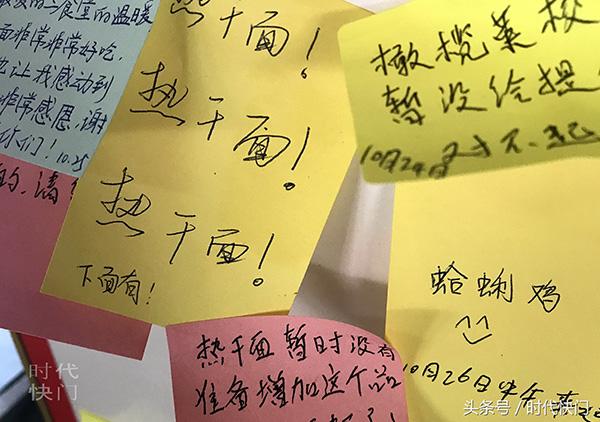 食堂的温暖
面非常非常好吃,
也让我感动到
非常感恩,谢
你们! 10.25
的,请
热干面!
热干面!
热干面!
下面有!
热干面 暂时没有
准备增加这个品
橄榄菜
暂没给提
10月24日 对不起
蛤蜊鸡
^^
10月26日中午
时代
快门
头条号 / 时代快门